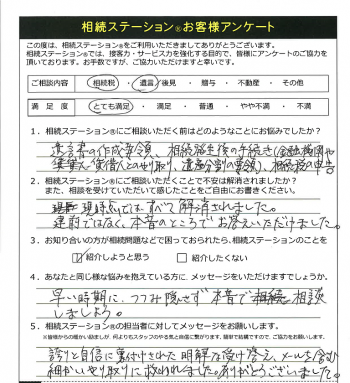 相続ステーション®お客様アンケート
この度は、相続ステーション®をご利用いただきましてありがとうございます。
相続ステーション®では、接客力・サービス力を強化する目的で、皆様にアンケートのご協力を
頂いております。お手数ですが、ご協力いただけますと幸いです。
ご相談内容 相続税 ・ 遺言/後見 ・ 贈与 ・ 不動産 ・ その他
満足度 とても満足 ・ 満足 ・ 普通 ・ やや不満 ・ 不満
1．相続ステーション®にご相談いただく前はどのようなことにお悩みでしたか？
遺言書の作成要領、相続発生後の手続き(金融機関や
賃貸人、賃借人とのやり取り、遺産分割の要領)、相続税の申告
2．相続ステーション®にご相談いただくことで不安は解消されましたか？
また、相談を受けていただいて感じたことをご自由にお書きください。
現時点ではすべて解消されました。
建前ではなく、本音のところでお答えいただけました。
3．お知り合いの方が相続問題などで困っておられたら、相続ステーション®のことを
☑紹介しようと思う □紹介したくない
4．あなたと同じ様な悩みを抱えている方に、メッセージをいただけますでしょうか。
早い時期に、つつみ隠せず本音で相談
しましょう。
5．相続ステーション®の担当者に対してメッセージをお願いします。
※皆様からの暖かい励ましが、何よりもスタッフのやる気と自信に繋がります。簡単で結構ですので、ご協力をお願いします。
誇りと自信に裏付けされた明解な受け答え、メールも含む
細かいやり取りに救われました。ありがとうございました。